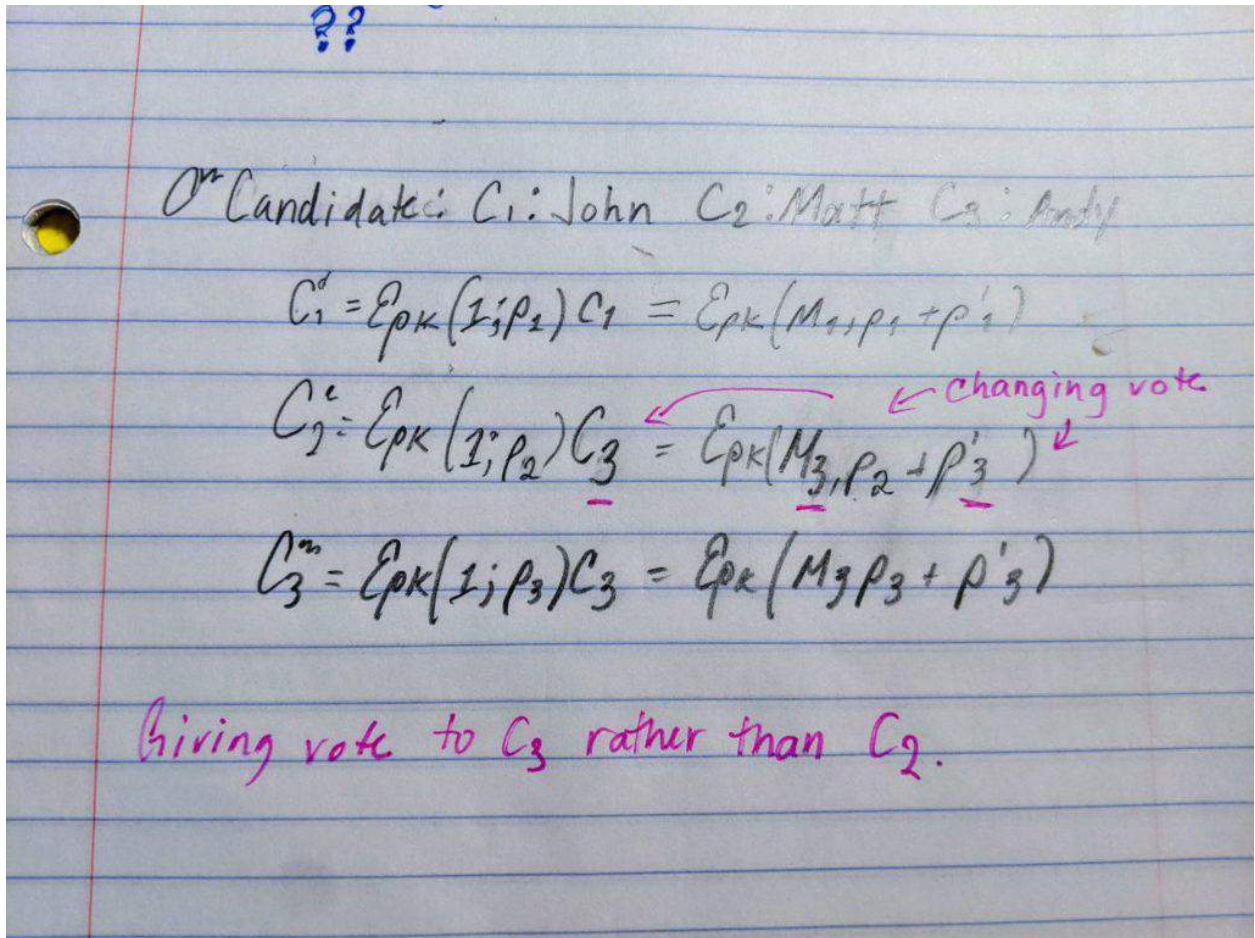 ??
Candidate: C₁: John C₂: Matt C₃: Andy
C₁ = Epk(1; ρ₁) C₁ = Epk(M₁, ρ₁ + ρ'₁)
← Changing vote
= Epk(1; ρ₂) C₃ = Epk(M₃, ρ₂ + ρ'₃)
C₃ᵐ = Epk(1; ρ₃) C₃ = Epk(M₃ ρ₃ + ρ'₃)
Giving vote to C₃ rather than C₂.